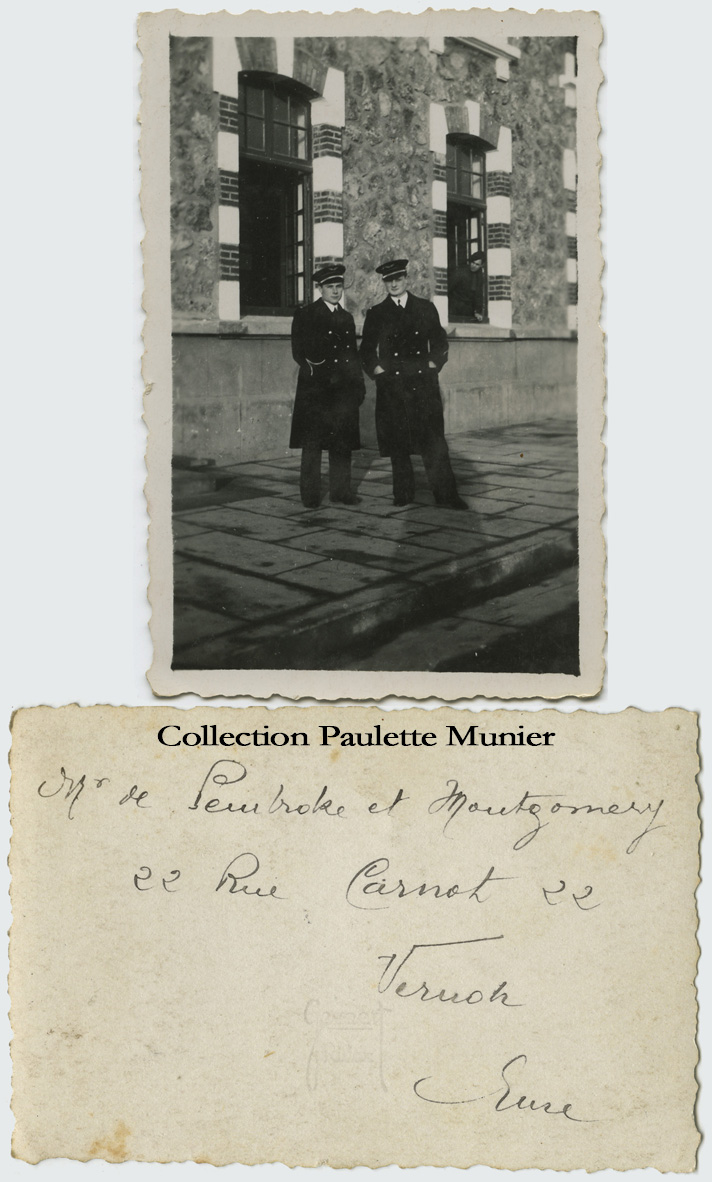 Collection Paulette Munier
Mr de Pembroke et Montgomery
22 Rue Carnot 22
Vernon
Eure